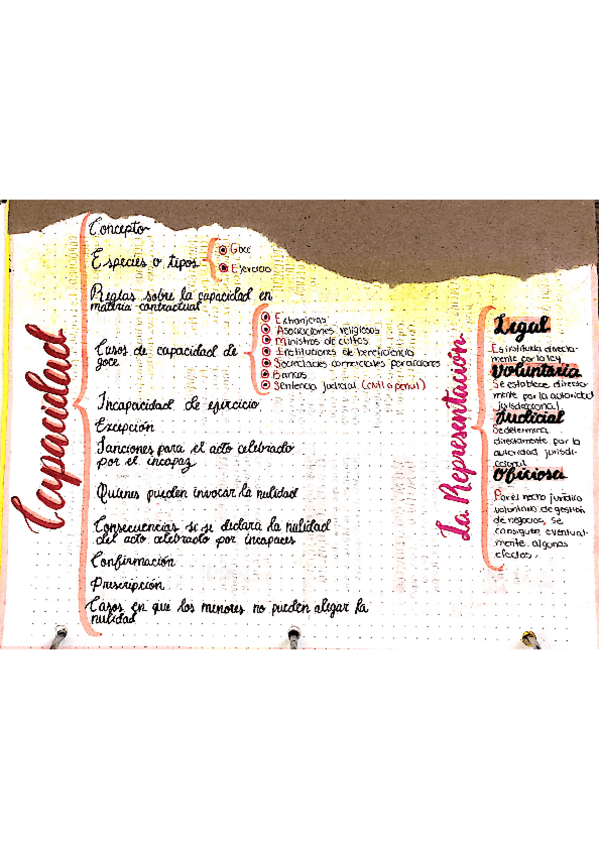 Capacidad
Concepto
Especies o tipos
Goce
Ejercicio
Reglas sobre la capacidad en
materia contractual
Casos de capacidad de
goce
Extranjeros
Asociaciones religiosas
Ministros de cultos
Instituciones de beneficiencia
Sociedades comerciales por acciones
Bancos
Sentencia judicial (civil o penal)
Incapacidad de ejercicio
Excepción
Sanciones para el acto celebrado
por el incapaz
Quienes pueden invocar la nulidad
Consecuencias si se declara la nulidad
del acto celebrado por incapaces
Confirmación
Prescripción
Casos en que los menores no pueden alegar la
nulidad
La Representación
Legal
Es instituida directa-
mente por la ley
Voluntaria
Se establece directa-
mente por la autoridad
jurisdiccional
Judicial
Se determina
directamente por la
autoridad jurisdi-
ccional
Oficiosa
Por el hecho jurídico
voluntario de gestión
de negocios, se
consiguen eventual-
mente algunos
efectos.